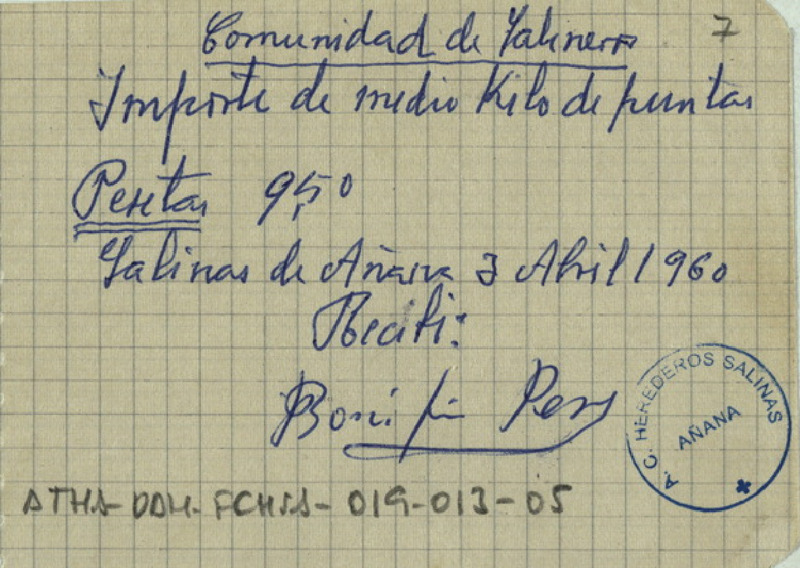 7
Comunidad de Salineros
Importe de medio Kilo de puntas
Pesetas 9,50
Salinas de Añana 3 Abril 1960
Recibi:
Boni
A.C. HEREDEROS SALINAS
AÑANA
ATHA-DAH-FCHSA-019-013-05